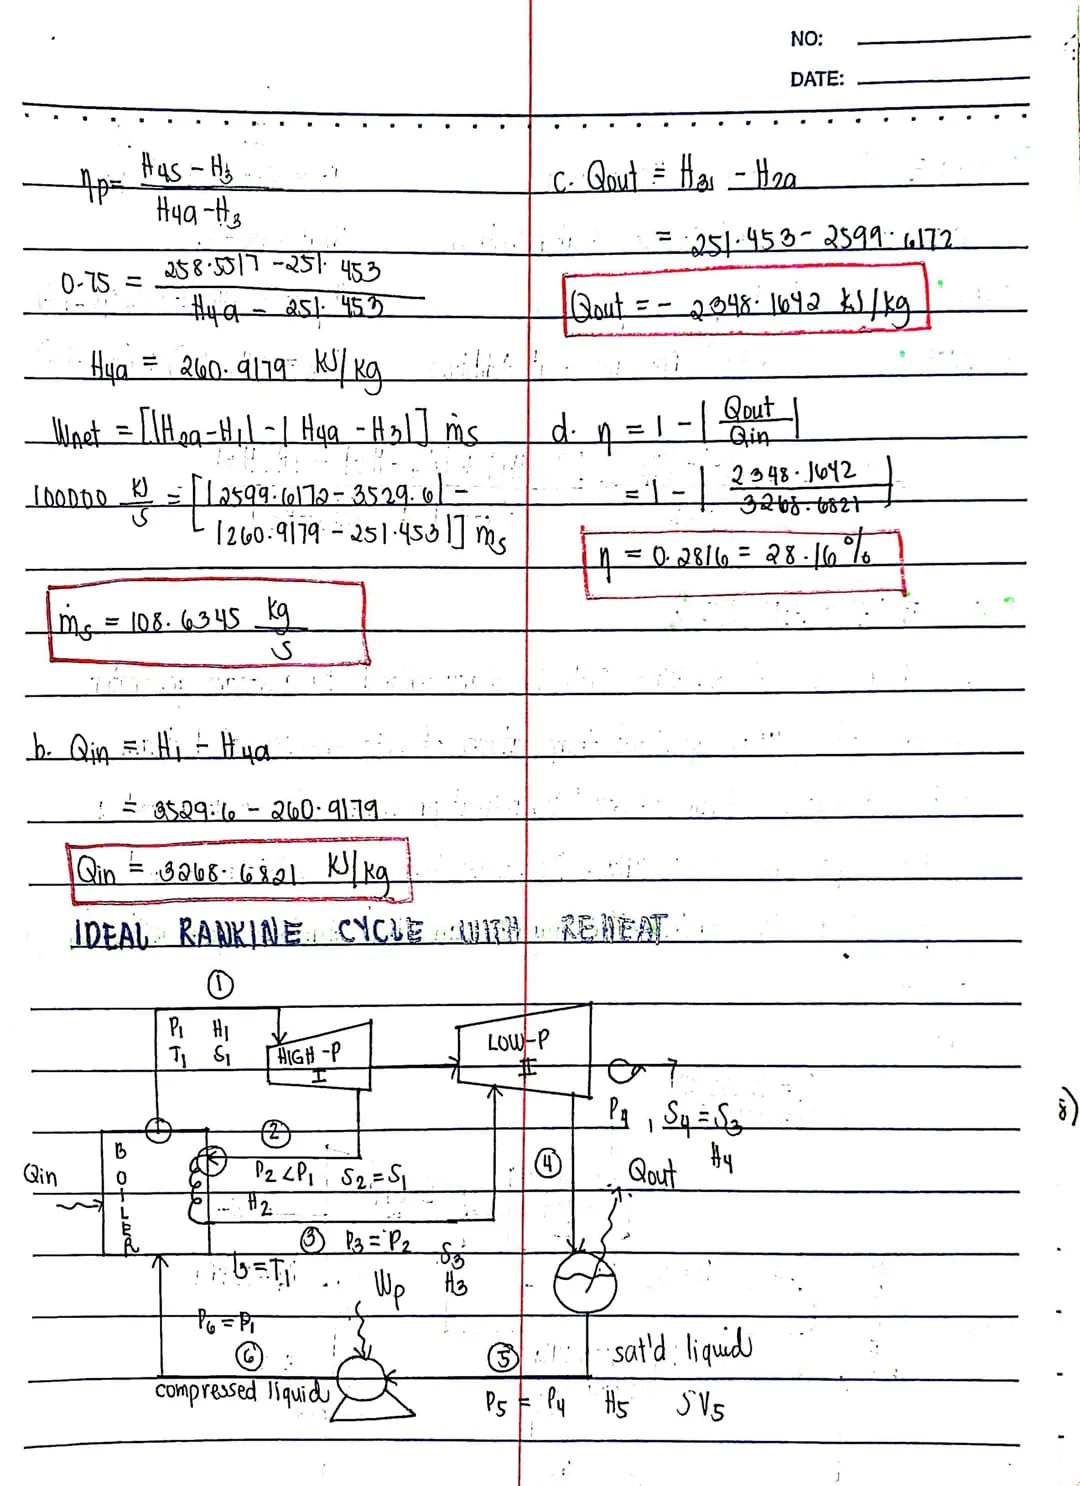 NO:
DATE:
ηp = H4s - H3 / H4a - H3
0.75 = 258.5517 - 251.453 / H4a - 251.453
H4a = 260.9179 kJ/kg
Wnet = [|H2a - H1| - |H4a - H3|] ṁs
100000 kJ/s = [|2599.6172 - 3529.6| -
|260.9179 - 251.453|] ṁs
ṁs = 108.6345 kg/s
b. Qin = H1 - H4a
= 3529.6 - 260.9179
Qin = 3268.6821 kJ/kg
c. Qout = H3 - H2a
= 251.453 - 2599.6172
Qout = - 2348.1642 kJ/kg
d. η = 1 - | Qout / Qin |
= 1 - | 2348.1642 / 3268.6821 |
η = 0.2816 = 28.16%
IDEAL RANKINE CYCLE WITH REHEAT
①
P1 H1
T1 S1
HIGH-P
I
LOW-P
II
P4, S4 = S3
H4
BOILER
Qin
②
P2 < P1 S2 = S1
H2
④
Qout
③ P3 = P2 S3
H3
t3 = T1
Wp
P6 = P1
⑥
compressed liquid
⑤
sat'd liquid
P5 = P4 H5 SV5
8)